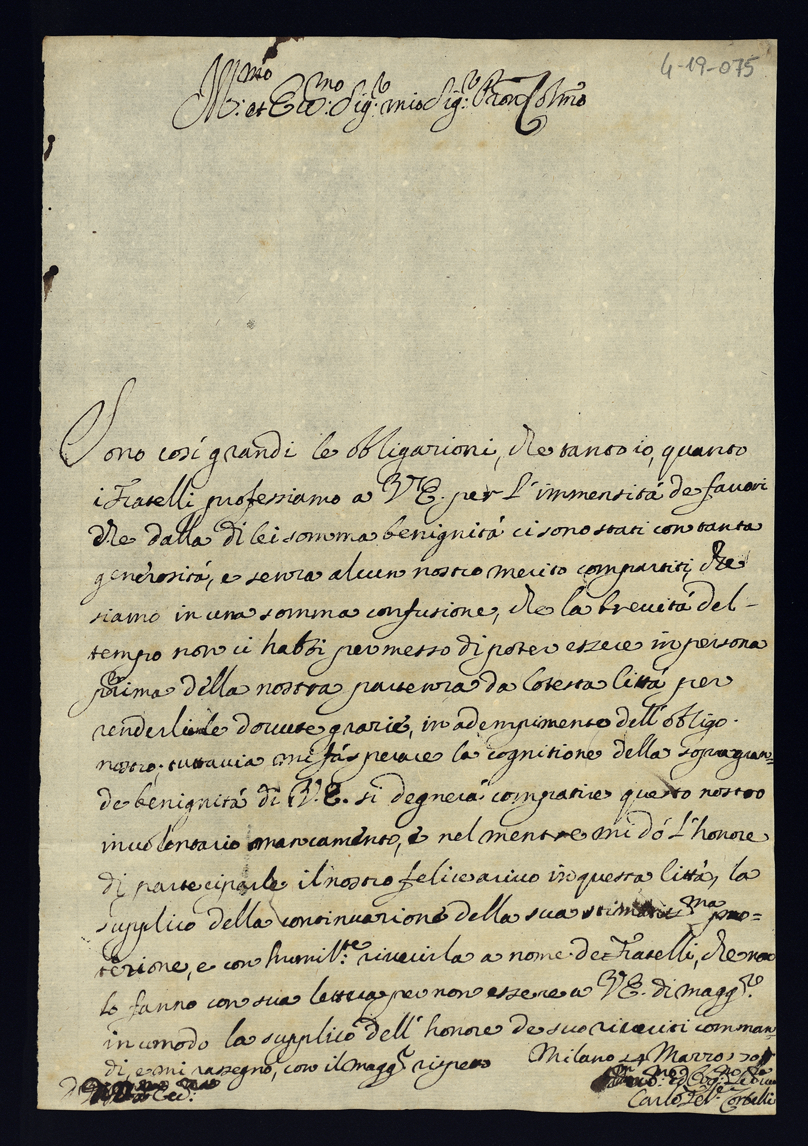 4-19-075
Ill.mo et Ecc.mo Sig.r mio Sig.r Pron Colmo
Sono così grandi le obligazioni, che tanto io, quanto
i Fratelli professiamo a V.E. per l'immensità de favori
che dalla di lei somma benignità ci sono stati con tanta
generosità, e senza alcun nostro merito compartiti, che
siamo in una somma confusione, che la brevità del-
tempo non ci habbi permesso di poter essere in persona
prima della nostra partenza da cotesta Città per
renderli le dovute grazie, in adempimento dell'obligo
nostro; tuttavia mi fà sperare la cognitione della sopragran=
de benignità di V.E. si degnerà compatire questo nostro
involontario mancamento, e nel mentre mi dò l'honore
di participarle il nostro felice arivo in questa Città, la
supplico della continuazione della sua stimatis.ma pro=
tezione, e con humil.te riverirla a nome de Fratelli, che non
lo fanno con sua lettera per non essere a V.E. di magg.r
incomodo la supplico dell'honore de suoi riveriti comman=
di, e mi rassegno, con il magg.r rispetto Milano 24 Marzo
D V. Ecc.
Carlo